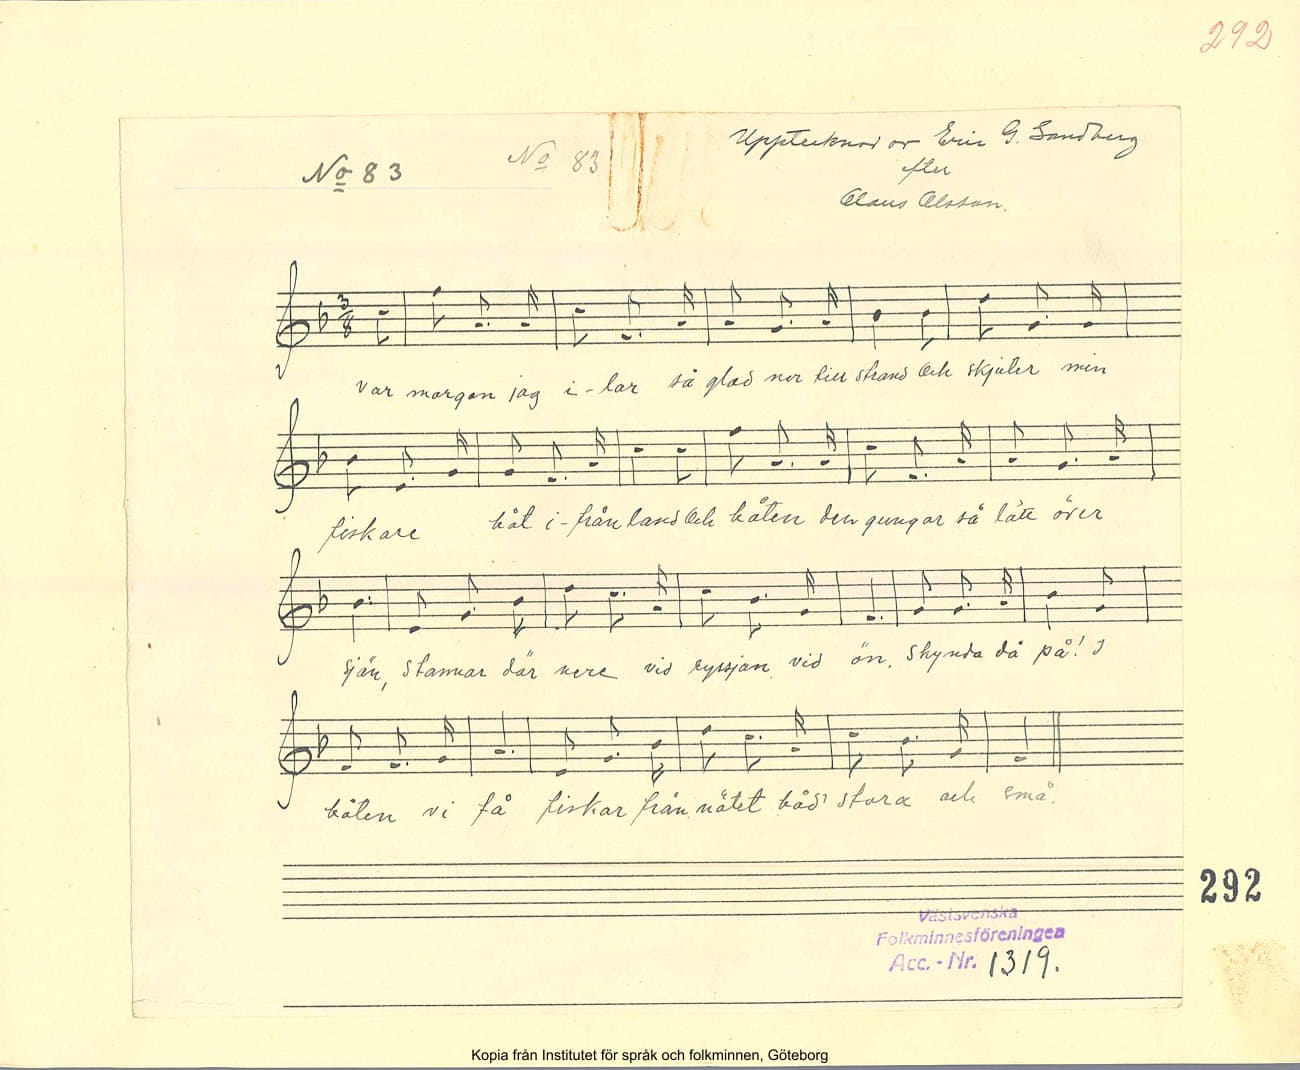 292
No 83
No 83
Upptecknad av Eric G. Sandberg
efter
Claus Olsson.
3
8
Var morgon jag i-lar så glad ner till strand Och skjuter min
fiskare båt i-från land Och båten den gungar så lätt över
sjön, Stannar där nere vid ryssjan vid ön. Skynda då på! I
båten vi få fiskar från nätet båd' stora och små.
292
Västsvenska
Folkminnesföreningen
Acc. - Nr. 1319.
Kopia från Institutet för språk och folkminnen, Göteborg